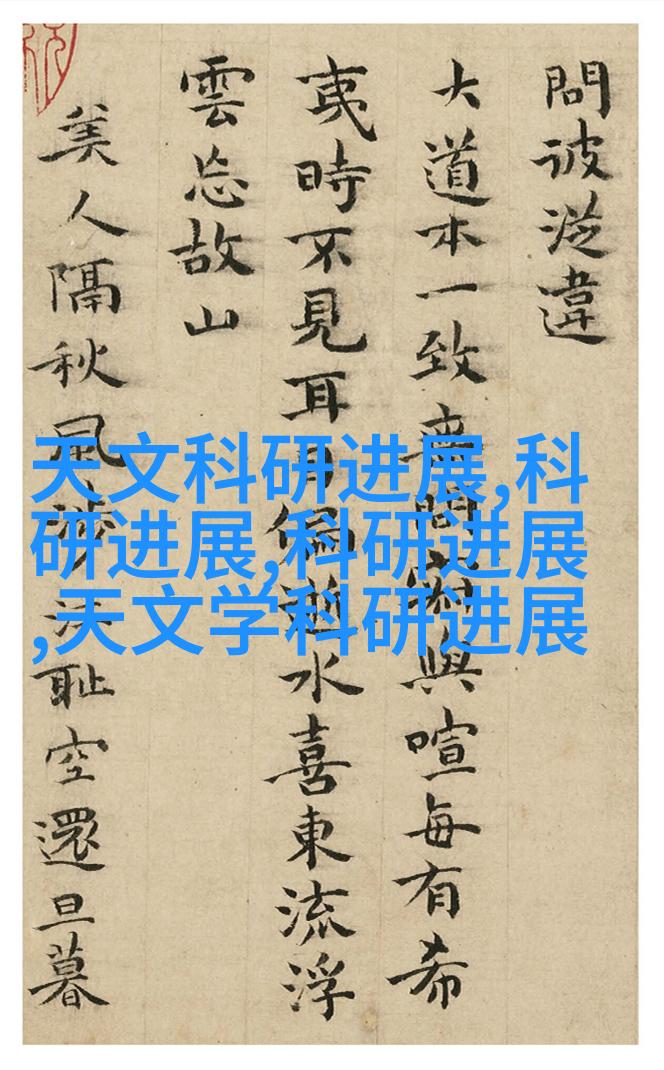 問彼從違
大道本一致問與喧每有希
夷時不見耳目偏逝水喜東流浮
雲忘故山
美人隔秋風涉江耻空還旦暮
天文科研进展,科
研进展,科研进展
,天文学科研进展